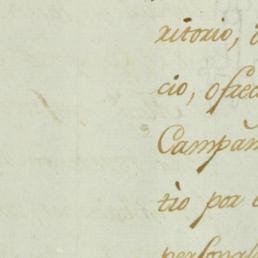 ritorio,
cio, ofrec
Campañ
tìo por
personal